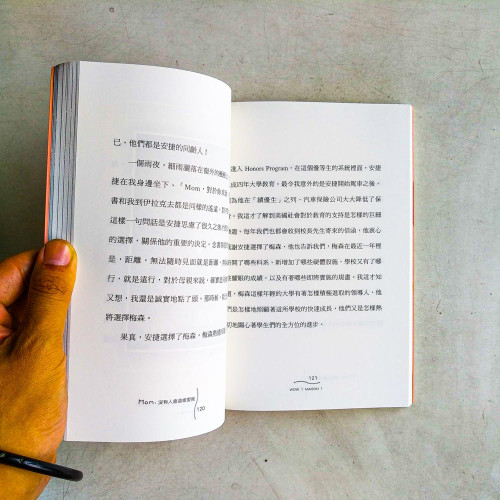 已，他們都是安捷的同謝人！
一個雨夜，細雨灑落在窗外的
捷在我身邊坐下，「Mom，對於你
書和我到伊拉克去都是同樣的遙遠，
這樣一句問話是安捷思慮了很久之
的選擇，關係他的重要的決定。念書
是，距離，無法隨時見面就是距離，
行，就是遠行，對於母親來說，
又想，我還是誠實地點了頭。那時候，
將選擇梅森。
果真，安捷選擇了梅森，梅森
Mom，沒有人會這樣愛我
120
進入 Honors Program，在這個優等生的系統裡面，安捷
成四年大學教育。最令我意外的是安捷開始駕車之後，
因為他在「績優生」之列，汽車保險公司大大降低了保
費，我這才了解到美國社會對於教育的支持是怎樣的巨細
靡遺。每年我們也都會收到校長先生寄來的信函，他衷心
感謝安捷選擇了梅森。他也告訴我們，梅森在最近一年裡
開了哪些科系，新增加了哪些硬體設施，學校又有了哪
些耀眼的成績，以及有著哪些即將實施的規畫。我這才知
道，梅森這樣年輕的大學有著怎樣積極進取的領導人，他
們是怎樣地照顧著這所學校的快速成長，他們又是怎樣熱
切地關心著學生們的全方位的進步。
121
WOW！MASON！